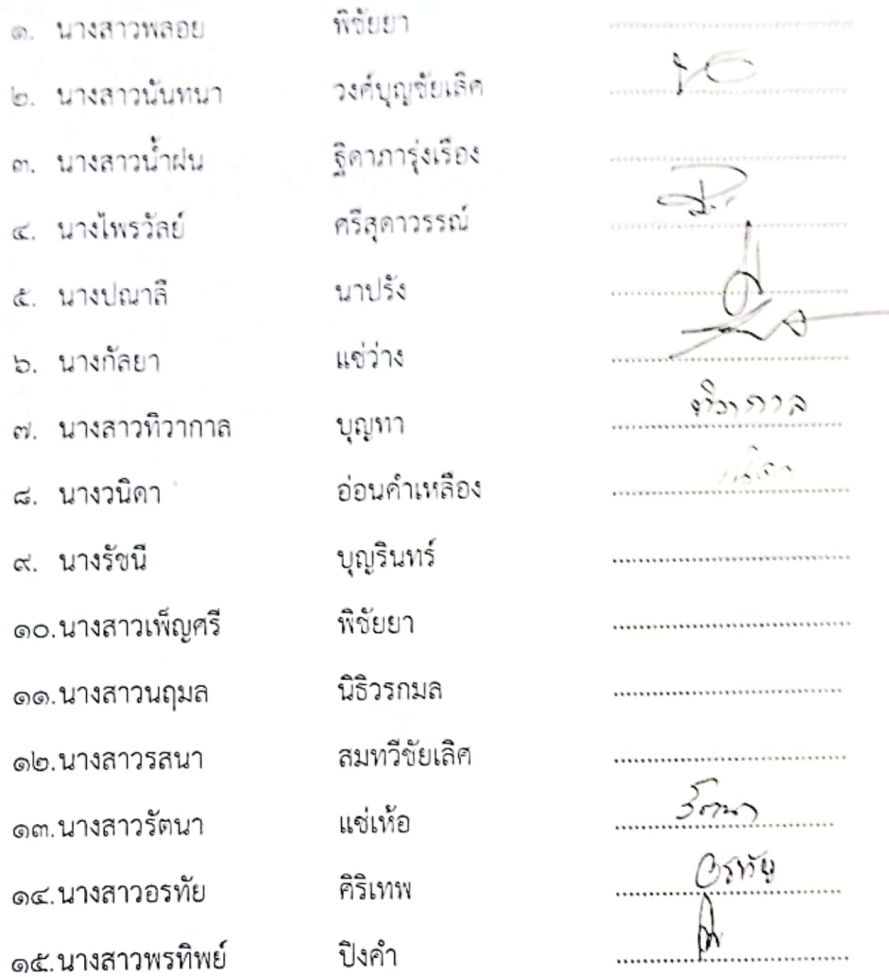 ๑. นางสาวพลอย พิชัยยา
๒. นางสาวนันทนา วงศ์บุญชัยเลิศ
๓. นางสาวน้ำฝน ฐิดาภารุ่งเรือง
๔. นางไพรวัลย์ ศรีสุดาวรรณ์
๕. นางปณาลี นาปรัง
๖. นางกัลยา แซ่ว่าง
๗. นางสาวทิวากาล บุญทา ทิวากาล
๘. นางวนิดา อ่อนคำเหลือง วนิดา
๙. นางรัชนี บุญรินทร์
๑๐.นางสาวเพ็ญศรี พิชัยยา
๑๑.นางสาวนฤมล นิธิวรกมล
๑๒.นางสาวรสนา สมทวีชัยเลิศ
๑๓.นางสาวรัตนา แซ่เห้อ รัตนา
๑๔.นางสาวอรทัย คิริเทพ อรทัย
๑๕.นางสาวพรทิพย์ ปิงคำ